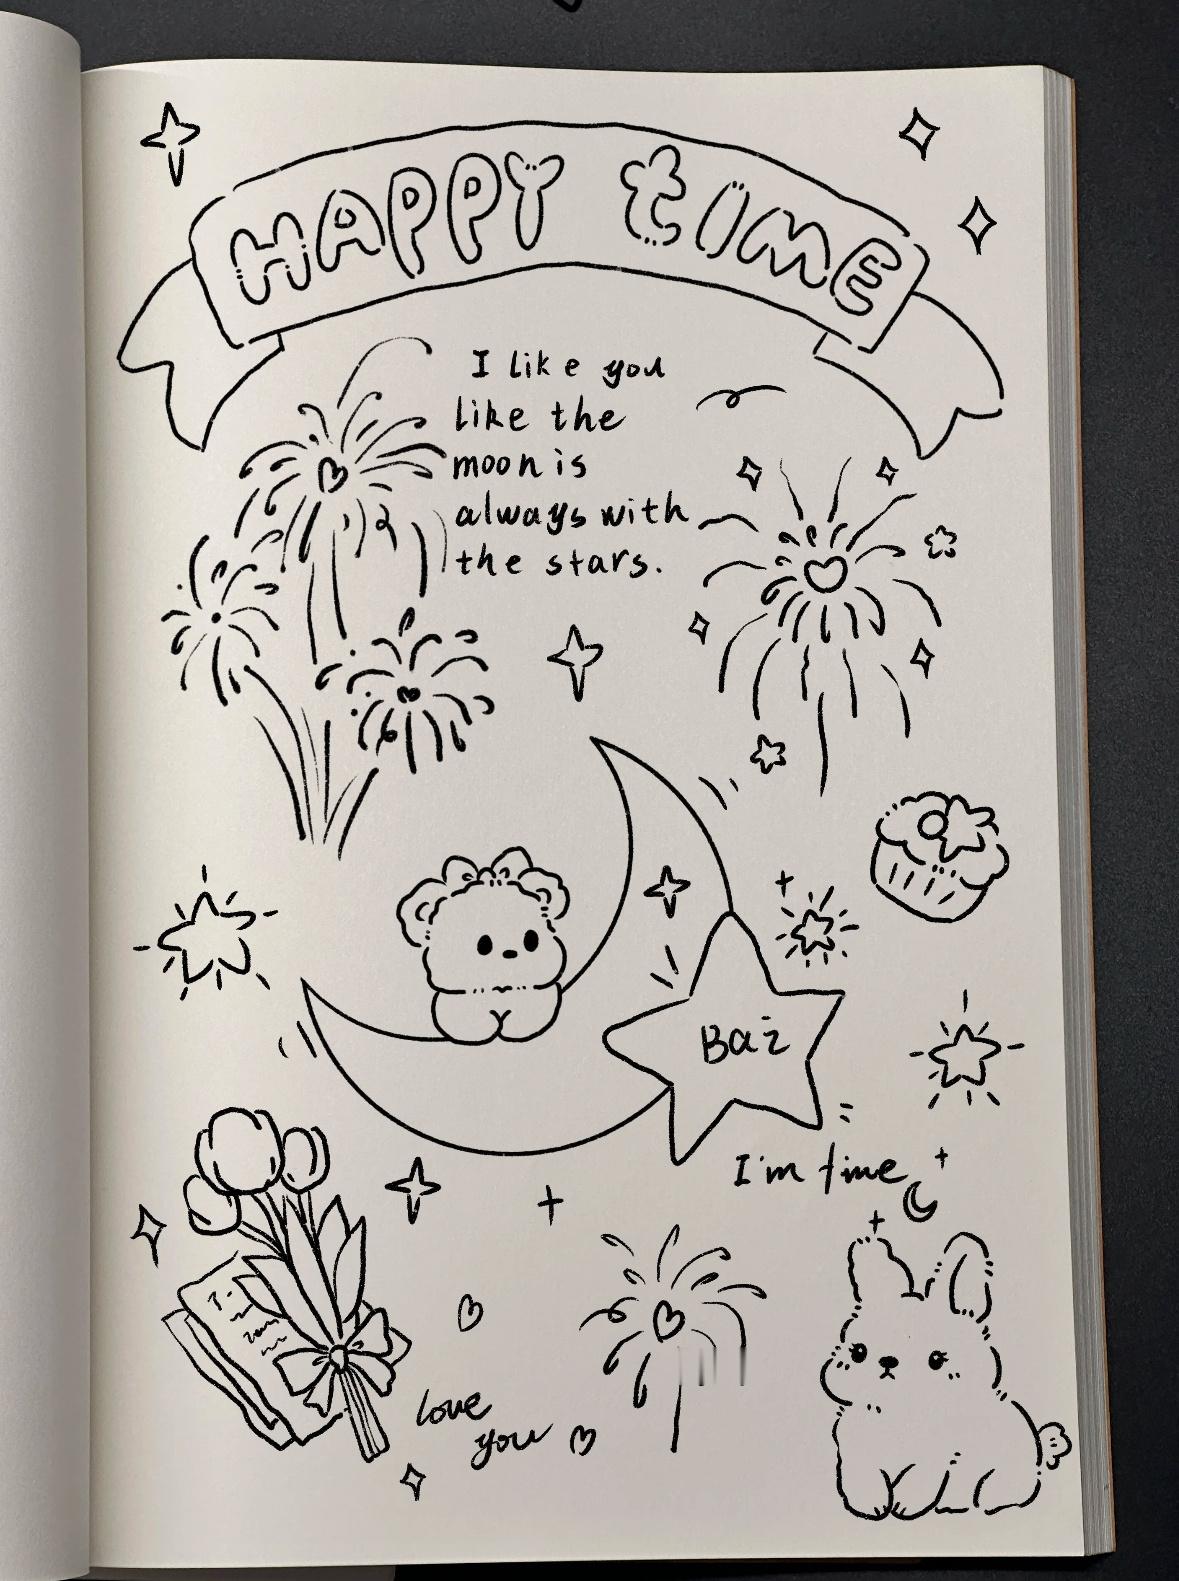 HAPPY tIME
I like you
like the
moon is
always with
the stars.
Bai
I'm fine
love
you